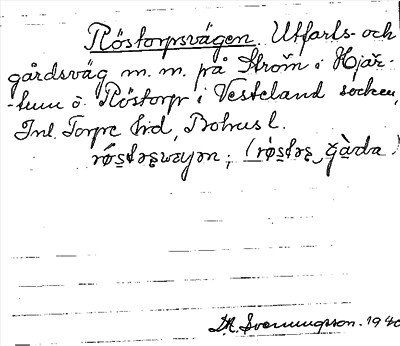 Röstorpsvägen. Utfarts- och
gårdsväg m. m. på Ström i Hjär-
-tum o. Röstorp i Vesteland socken,
Inl. Torpe hrd, Bohus l.
röstrɛwæjən, (röstrɛ gàrda)
Svenningsson. 1940